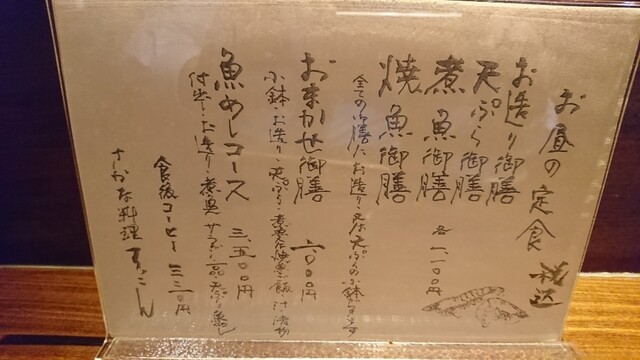 お昼の定食 税込
お造り御膳
天ぷら御膳
煮魚御膳 各一、一〇〇円
焼魚御膳
全ての御膳に、お造り・又は天ぷらの小鉢が付きます
おまかせ御膳 二、〇〇〇円
小鉢・お造り・天ぷら・煮魚又は焼魚・ご飯・汁・漬物
魚めしコース 三、五〇〇円
付出し・お造り・煮魚 サラダ 一品・天ぷら 魚めし
食後コーヒー 三三〇円
さかな料理